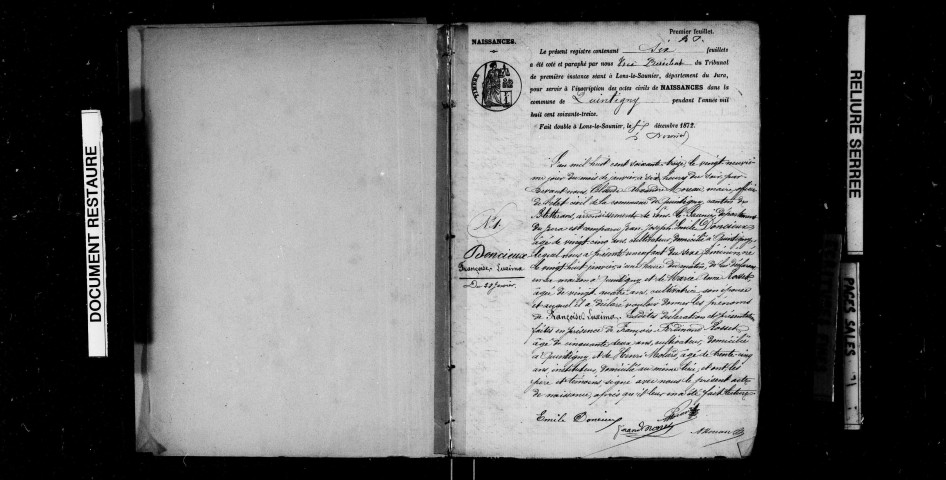 DOCUMENT RESTAURE
Premier feuillet.
NAISSANCES.
Le présent registre contenant Six feuillets
a été coté et paraphé par nous Vice Président du Tribunal
de première instance séant à Lons-le-Saunier, département du Jura,
pour servir à l'inscription des actes civils de NAISSANCES dans la
commune de Quintigny pendant l'année mil
huit cent soixante-treize.
Fait double à Lons-le-Saunier, le décembre 1872.
TIMBRE
L'an mil huit cent soixante treize, le vingt neuviè
me jour du mois de janvier, à six heures du soir, par
devant nous, Claude Moreau, maire, officier
de l'état civil de la commune de Quintigny, canton de
Bletterans, arrondissement de Lons le Saunier, département
du Jura est comparu Joseph Emile Doncieux
âgé de vingt cinq ans, cultivateur, domicilié à Quintigny,
lequel nous a présenté un enfant du sexe féminin, né
le vingt huit janvier, à une heure du matin, de lui déclarant
en sa maison à Quintigny et de Marie Rosset
âgée de vingt quatre ans, cultivatrice, son épouse
et auquel il a déclaré vouloir donner les prénoms
de Françoise Euzima. Lesdites déclaration et présentation
faites en présence de François Ferdinand Rosset
âgé de cinquante deux ans, cultivateur, domicilié
à Quintigny et de Henri âgé de trente cinq
ans, instituteur, domicilié au même lieu, et ont, les
père et témoins signé avec nous le présent acte
de naissance, après qu'il leur en a été fait lecture.
N° 1.
Doncieux
Françoise Euzima
Du 29 janvier.
Emile Doncieux
RELIURE SERREE
PAGES SALES